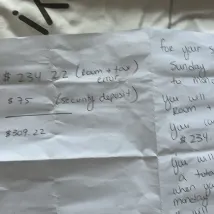 $ 234.22 (Room + tax)
$ 75 (security deposit)
$309.22
for your
Sunday
to mon
You will
Room +
You
$ 234
You will
a tota
when
monday